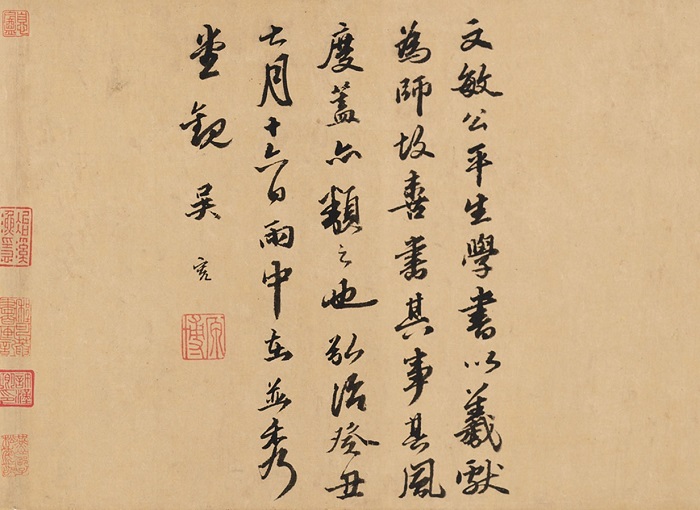 文敏公平生學書以羲獻
為師故喜書其事其風
度蓋亦類之也弘治癸丑
七月十六日雨中在並秀
堂觀吳寬
原博